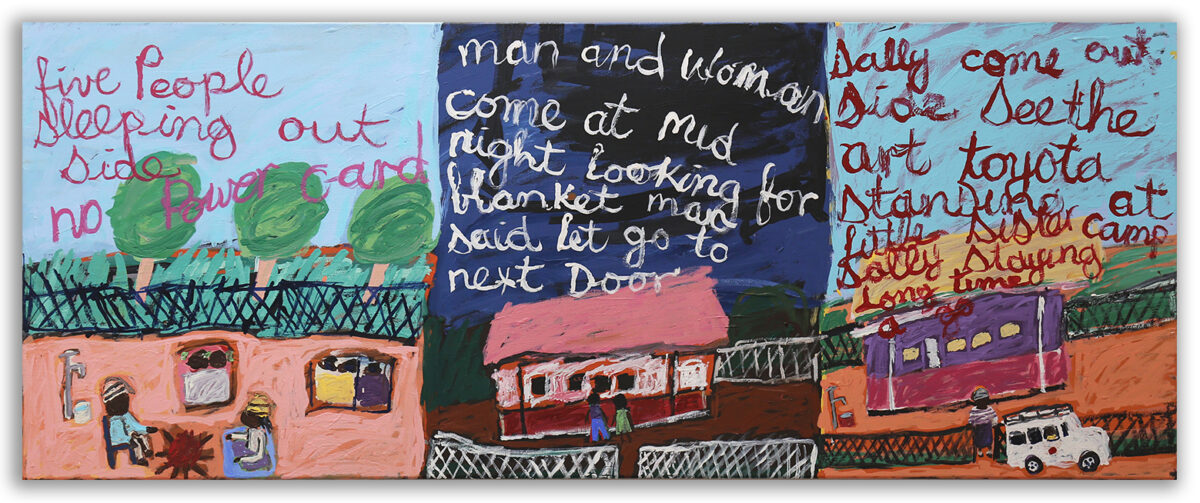 five People
sleeping out
side
no Power card
man and woman
come at mid
night looking for
blanket man
said let go to
next Door
Sally come out
side see the
art toyota
standing at
little sister camp
sally staying
long time
a go